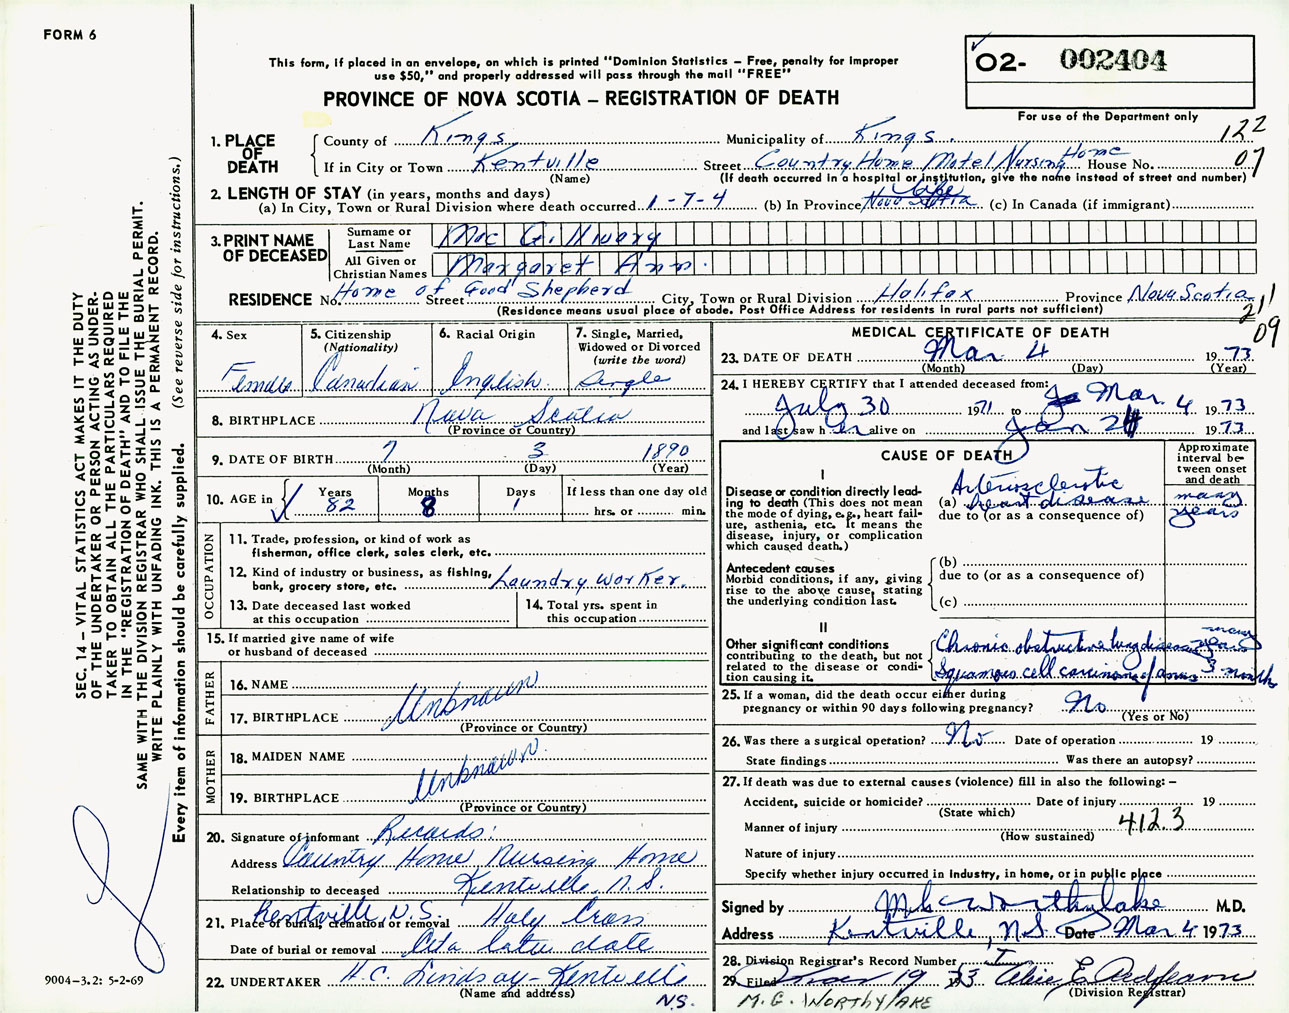 FORM 6
This form, if placed in an envelope, on which is printed "Dominion Statistics – Free, penalty for improper
use $50," and properly addressed will pass through the mail "FREE"
PROVINCE OF NOVA SCOTIA – REGISTRATION OF DEATH
02- 002404
For use of the Department only
122
07
1. PLACE OF DEATH
County of Kings Municipality of Kings.
If in City or Town Kentville Street Country Home Motel Nursing Home House No.
(Name) (If death occurred in a hospital or institution, give the name instead of street and number)
2. LENGTH OF STAY (in years, months and days)
(a) In City, Town or Rural Division where death occurred 1-7-4 (b) In Province Nova Scotia Life (c) In Canada (if immigrant)
3. PRINT NAME OF DECEASED
Surname or Last Name Mac Gillivary
All Given or Christian Names Margaret Ann.
RESIDENCE No. Home of Good Shepherd Street City, Town or Rural Division Halifax Province Nova Scotia
(Residence means usual place of abode. Post Office Address for residents in rural parts not sufficient)
211
09
4. Sex Female
5. Citizenship (Nationality) Canadian
6. Racial Origin English
7. Single, Married, Widowed or Divorced (write the word) Single
8. BIRTHPLACE Nova Scotia
(Province or Country)
9. DATE OF BIRTH 7 3 1890
(Month) (Day) (Year)
10. AGE in Years 82 Months 8 Days 1 If less than one day old
hrs. or min.
OCCUPATION
11. Trade, profession, or kind of work as
fisherman, office clerk, sales clerk, etc.
12. Kind of industry or business, as fishing,
bank, grocery store, etc. Laundry Worker.
13. Date deceased last worked
at this occupation
14. Total yrs. spent in
this occupation
15. If married give name of wife
or husband of deceased
FATHER
16. NAME
Unknown
17. BIRTHPLACE
(Province or Country)
MOTHER
18. MAIDEN NAME
Unknown
19. BIRTHPLACE
(Province or Country)
20. Signature of informant Records:
Address Country Home Nursing Home
Kentville, N.S.
Relationship to deceased
Kentville, N.S.
21. Place of burial, cremation or removal Holy Cross
Date of burial or removal At a later date
22. UNDERTAKER H.C. Lindsay - Kentville
(Name and address) N.S.
MEDICAL CERTIFICATE OF DEATH
23. DATE OF DEATH Mar 4 1973
(Month) (Day) (Year)
24. I HEREBY CERTIFY that I attended deceased from:
July 30 1971 to Mar 4 1973
and last saw her alive on Jan 24 1973
CAUSE OF DEATH
Approximate interval between onset and death
I
Disease or condition directly leading
to death (This does not mean
the mode of dying, e.g., heart failure,
asthenia, etc. It means the
disease, injury, or complication
which caused death.)
(a) Arteriosclerotic heart disease many years
due to (or as a consequence of)
Antecedent causes
Morbid conditions, if any, giving
rise to the above cause, stating
the underlying condition last.
(b)
due to (or as a consequence of)
(c)
II
Other significant conditions
contributing to the death, but not
related to the disease or condition
causing it.
Chronic obstructive lung disease many years
Squamous cell carcinoma of anus 3 months
25. If a woman, did the death occur either during
pregnancy or within 90 days following pregnancy? No
(Yes or No)
26. Was there a surgical operation? No Date of operation 19
State findings Was there an autopsy?
27. If death was due to external causes (violence) fill in also the following: –
Accident, suicide or homicide? Date of injury 19
(State which)
Manner of injury 412.3
(How sustained)
Nature of injury
Specify whether injury occurred in industry, in home, or in public place
Signed by M G Worthylake M.D.
Address Kentville, N.S. Date Mar 4 1973
28. Division Registrar's Record Number
29. Filed 19 73
(Division Registrar)
M.G. WORTHYLAKE
SEC. 14 – VITAL STATISTICS ACT MAKES IT THE DUTY
OF THE UNDERTAKER OR PERSON ACTING AS UNDERTAKER
TO OBTAIN ALL THE PARTICULARS REQUIRED
IN THE "REGISTRATION OF DEATH" AND TO FILE THE
SAME WITH THE DIVISION REGISTRAR WHO SHALL ISSUE THE BURIAL PERMIT.
WRITE PLAINLY WITH UNFADING INK. THIS IS A PERMANENT RECORD.
Every item of information should be carefully supplied. (See reverse side for instructions.)
9004-3.2: 5-2-69